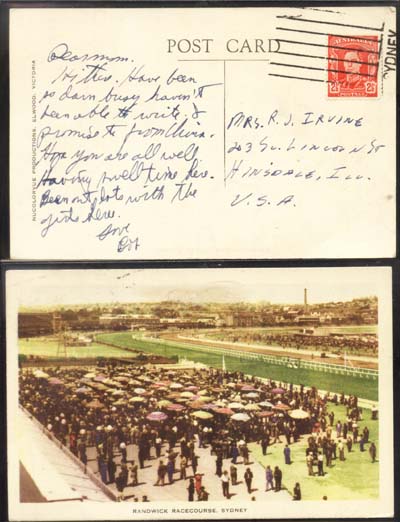 POST CARD
Dear mum.
Hi there. Have been
so darn busy haven't
been able to write, I
promise to from
Hope you are all well
Having swell time here.
Been out lots with the
girls here.
Love
NUCOLORVUE PRODUCTIONS, ELWOOD, VICTORIA
SYDNEY
AUSTRALIA
2½
POSTAGE
MRS. R. J. IRVINE
203 SO. LINCOLN ST
HINSDALE, ILL.
U.S.A.
RANDWICK RACECOURSE, SYDNEY